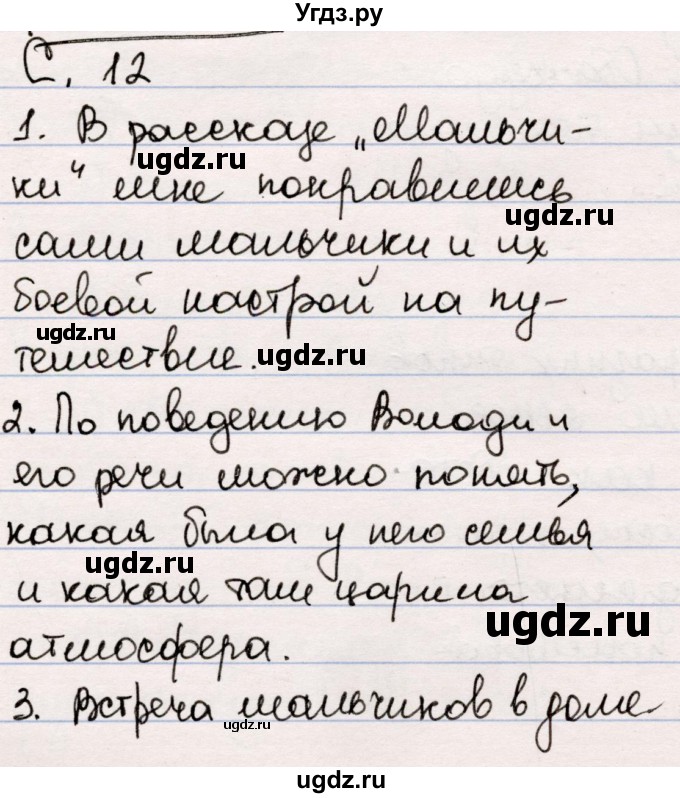 Угдз.ру
С. 12
1. В рассказе „Мальчи-
ugdz.ru
ки“ мне понравились
ugdz.ru
сами мальчики и их
боевой настрой на пу-
ugdz.ru
тешествие.
ugdz.ru
2. По поведению Володи и
его речи можно понять,
какая была у него семья
ugdz.ru
и какая там царила
ugdz.ru
атмосфера.
3. Встреча мальчиков в доме
ugdz.ru
ugdz.ru